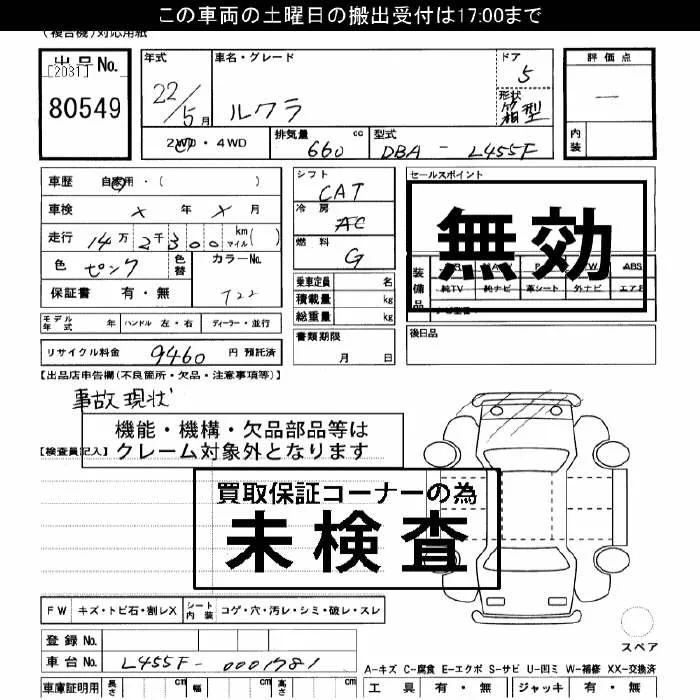 この車両の土曜日の搬出受付は17:00まで
(複合機)対応用紙
出品No.
[2031]
80549
年式
22/5月
車名・グレード
ルクラ
ドア
5
形状
箱型
評価点
―
内装
2WD・4WD
排気量 660 cc
型式 DBA - L455F
車歴 自家用・( )
車検 × 年 × 月
走行 14万2千300 km マイル( )
色 ピンク 色替
カラーNo.
T22
保証書 有・無
シフト
CAT
冷房
AC
燃料
G
乗車定員 名
積載量 kg
総重量 kg
書類期限
月 日
セールスポイント
無効
装備品
ABS
純TV 純ナビ 革シート 外ナビ エアB
後日品
モデル年式 年 ハンドル 左・右 ディーラー・並行
リサイクル料金 9460 円 預託済
【出品店申告欄(不良箇所・欠品・注意事項等)】
事故現状
機能・機構・欠品部品等は
クレーム対象外となります
【検査員記入】
買取保証コーナーの為
未検査
FW キズ・トビ石・割レX シート内装 コゲ・穴・汚レ・シミ・破レ・スレ
スペア
登録No.
車台No. L455F-0001781
A-キズ C-腐食 E-エクボ S-サビ U-凹ミ W-補修 XX-交換済
車庫証明用 長さ cm 幅 cm 高さ cm
工具 有・無 ジャッキ 有・無